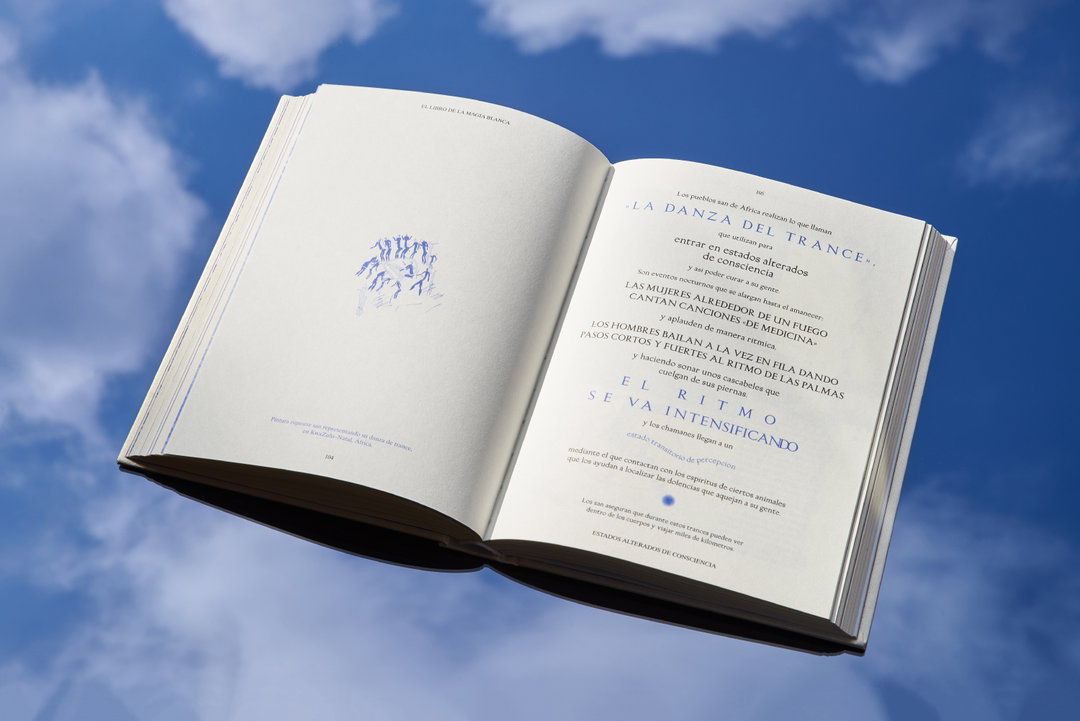 EL LIBRO DE LA MAGIA BLANCA
Pintura rupestre san representando su danza de trance,
en KwaZulu-Natal, África.
104
Los pueblos san de África realizan lo que llaman
«LA DANZA DEL TRANCE»,
que utilizan para
entrar en estados alterados
de consciencia
y así poder curar a su gente.
Son eventos nocturnos que se alargan hasta el amanecer:
LAS MUJERES ALREDEDOR DE UN FUEGO
CANTAN CANCIONES «DE MEDICINA»
y aplauden de manera rítmica.
LOS HOMBRES BAILAN A LA VEZ EN FILA DANDO
PASOS CORTOS Y FUERTES AL RITMO DE LAS PALMAS
y haciendo sonar unos cascabeles que
cuelgan de sus piernas.
EL RITMO
SE VA INTENSIFICANDO
y los chamanes llegan a un
estado transitorio de percepción
mediante el que contactan con los espíritus de ciertos animales
que los ayudan a localizar las dolencias que aquejan a su gente.
Los san aseguran que durante estos trances pueden ver
dentro de los cuerpos y viajar miles de kilómetros.
ESTADOS ALTERADOS DE CONSCIENCIA